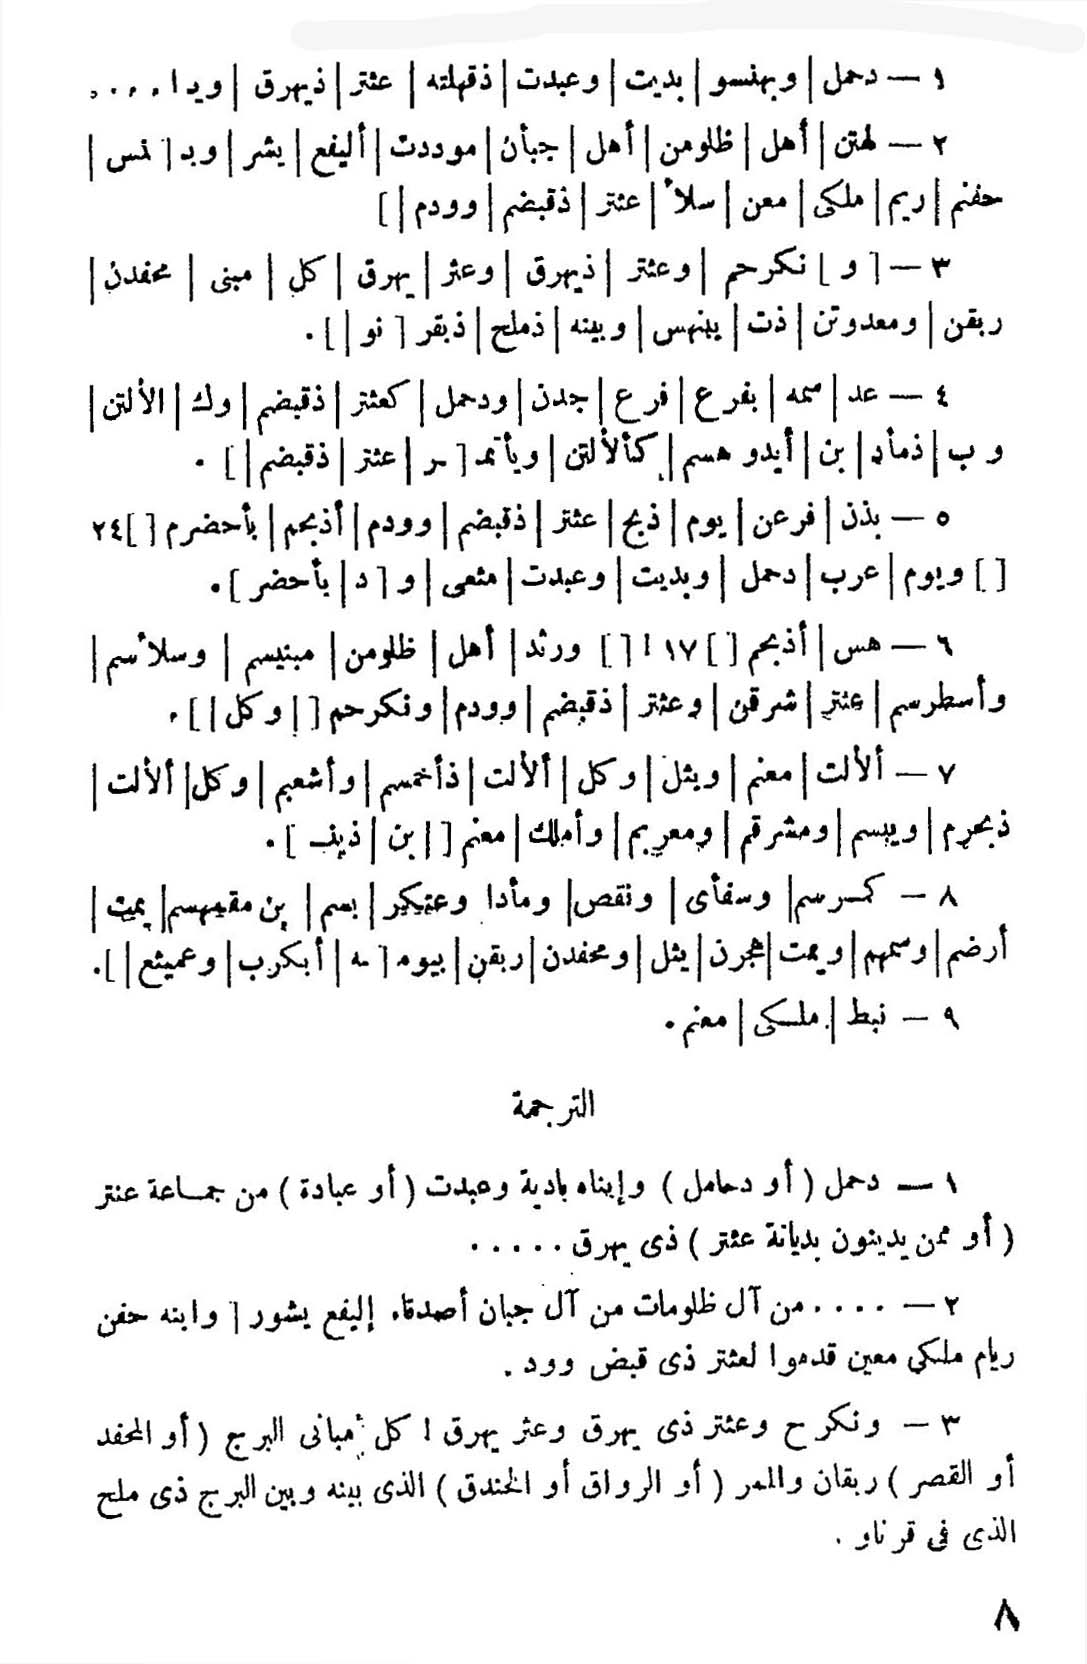 ١ — دحمل | وبهنسو | بديت | وعبدت | ذقهلته | عثتر | ذيهرق | ويدا . . . . .
٢ — لهتن | أهل | ظلومن | أهل | جبأن | موددت | أليفع | يشر | وبد [ نمس |
حفنم | ريم | ملكى | معن | سلأ | عثتر | ذقبضم | وودم | ]
٣ — [ و ] نكرحم | وعثتر | ذيهرق | وعثر | يهرق | كل | مبنى | محفدن |
ربقن | ومعدوتن | ذت | بينهس | وبينه | ذملح | ذبقر [ نو | ] .
٤ — عد | سمه | بفرع | فرع | جدن | ودحمل | كعثتر | ذقبضم | وك | الألتن |
و ب | ذمأد | بن | أيدو هسم | كنألألتن | ويأتمـ [ ـر | عثتر | ذقبضم | ] .
٥ — بذن | فرعن | يوم | ذبح | عثتر | ذقبضم | وودم | أذبحم | بأحضرم [ ] ٢٤
[ ] ويوم | عرب | دحمل | وبديت | وعبدت | مثعى | و [ د | بأحضر ] .
٦ — هس | أذبحم [ ] ١٧ ا [ ] ورثد | أهل | ظلومن | مبنيسم | وسلأسم |
وأسطرسم | عثتر | شرقن | وعثتر | ذقبضم | وودم | ونكرحم [ | وكل | ] .
٧ — ألألت | معنم | ويثل | وكل | ألألت | ذأخمسم | وأشعبم | وكل | ألألت |
ذبحرم | ويبسم | ومشرقم | ومعربم | وأملك | معنم [ | بن | ذيفـ ] .
٨ — كمـرسم | وسفأى | ونقص | ومأدا وعتيكير | بسم | بن مقمهسم | يميت |
أرضم | وسمهم | ويمت | هجرن | يثل | ومحفدن | ربقن | بيومـ [ ـه | أبكرب | وعميثع | ] .
٩ — نبط | ملكى | معنم .
الترجمة
١ — دحمل ( أو دحامل ) وإبناه بادية وعبدت ( أو عبادة ) من جماعة عنتر
( أو ممن يدينون بديانة عثتر ) ذى يهرق . . . . .
٢ — . . . . من آل ظلومات من آل جبان أصدقاء إليفع يشور [ وابنه حفن
ريام ملكي معين قدموا لعثتر ذى قبض وود .
٣ — ونكرح وعثتر ذى يهرق وعثر يهرق ! كل مبانى البرج ( أو المحفد
أو القصر ) ربقان والممر ( أو الرواق أو الخندق ) الذى بينه وبين البرج ذى ملح
الذى فى قرناو .
٨